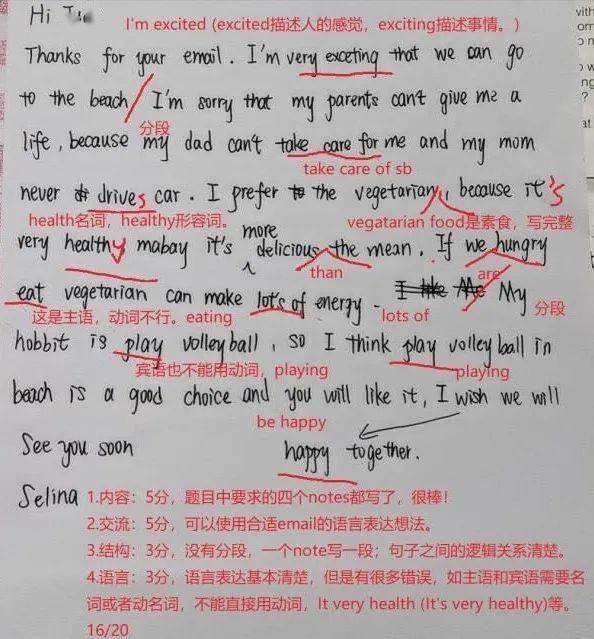 Hi
I'm excited (excited描述人的感觉，exciting描述事情。)
Thanks for your email. I'm very exceting that we can go
to the beach/ I'm sorry that my parents can't give me a
分段
life, because my dad can't take care for me and my mom
take care of sb
never drives car. I prefer the vegetarian, because it's
health名词，healthy形容词。 more vegatarian food是素食，写完整
very healthy mabay it's delicious the mean. If we hungry
than are
eat vegetarian can make lots of energy. I like My
这是主语，动词不行。eating lots of 分段
hobbit is play volleyball, so I think play volleyball in
宾语也不能用动词，playing playing
beach is a good choice and you will like it, I wish we will
be happy
See you soon happy together.
Selina
1.内容：5分，题目中要求的四个notes都写了，很棒！
2.交流：5分，可以使用合适email的语言表达想法。
3.结构：3分，没有分段，一个note写一段；句子之间的逻辑关系清楚。
4.语言：3分，语言表达基本清楚，但是有很多错误，如主语和宾语需要名
词或者动名词，不能直接用动词，It very health (It's very healthy)等。
16/20